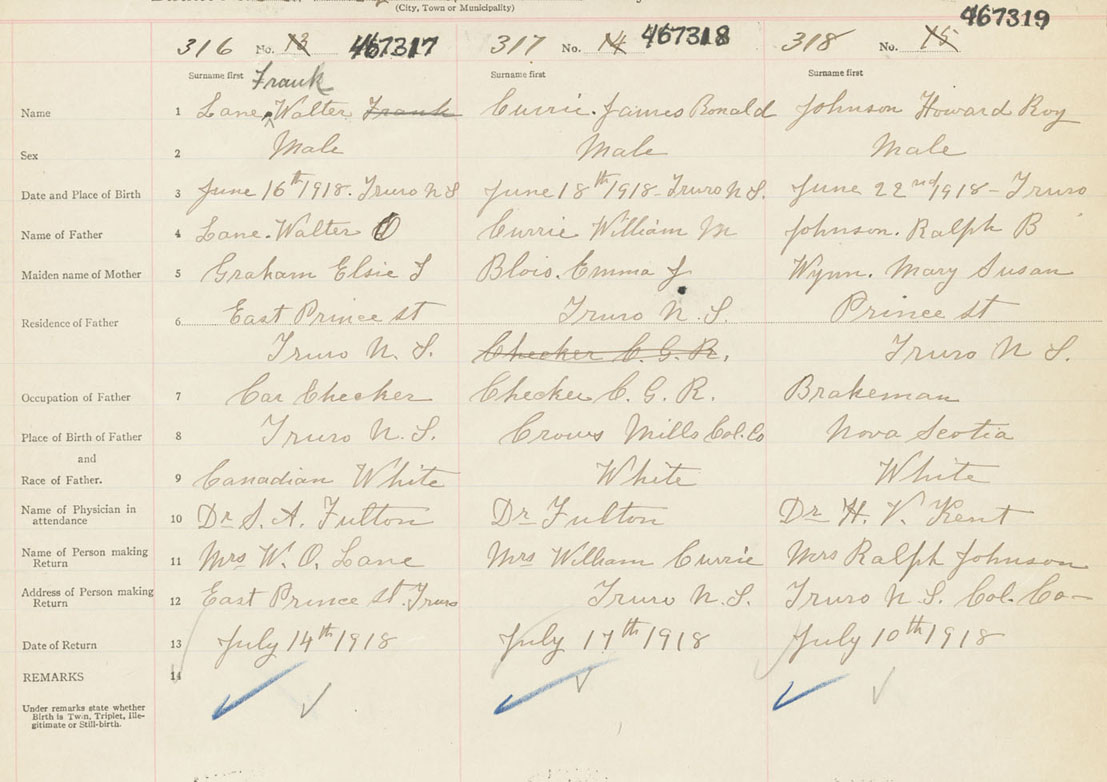 (City, Town or Municipality)
316 No. 13 467317 317 No. 14 467318 318 No. 15 467319
Surname first Frank Surname first Surname first
Name 1 Lane, Walter Frank Currie. James Ronald Johnson Howard Roy
Sex 2 Male Male Male
Date and Place of Birth 3 June 16th 1918. Truro N S June 18th 1918- Truro N.S. June 22nd 1918- Truro
Name of Father 4 Lane. Walter O Currie William M Johnson. Ralph B
Maiden name of Mother 5 Graham Elsie Blois. Emma J Wynn. Mary Susan
Residence of Father 6 East Prince st Truro N.S. Prince st
Truro N.S. Checker C.G.R. Truro N S.
Occupation of Father 7 Car Checker Checker C.G.R. Brakeman
Place of Birth of Father 8 Truro N.S. Crows Mills Col. Co Nova Scotia
and
Race of Father. 9 Canadian White White White
Name of Physician in attendance 10 Dr S. A. Fulton Dr Fulton Dr H. V. Kent
Name of Person making Return 11 Mrs W. O. Lane Mrs William Currie Mrs Ralph Johnson
Address of Person making Return 12 East Prince st. Truro Truro N.S. Truro N.S. Col. Co-
Date of Return 13 July 14th 1918 July 17th 1918 July 10th 1918
REMARKS 14
Under remarks state whether
Birth is Twin, Triplet, Ille-
gitimate or Still-birth.